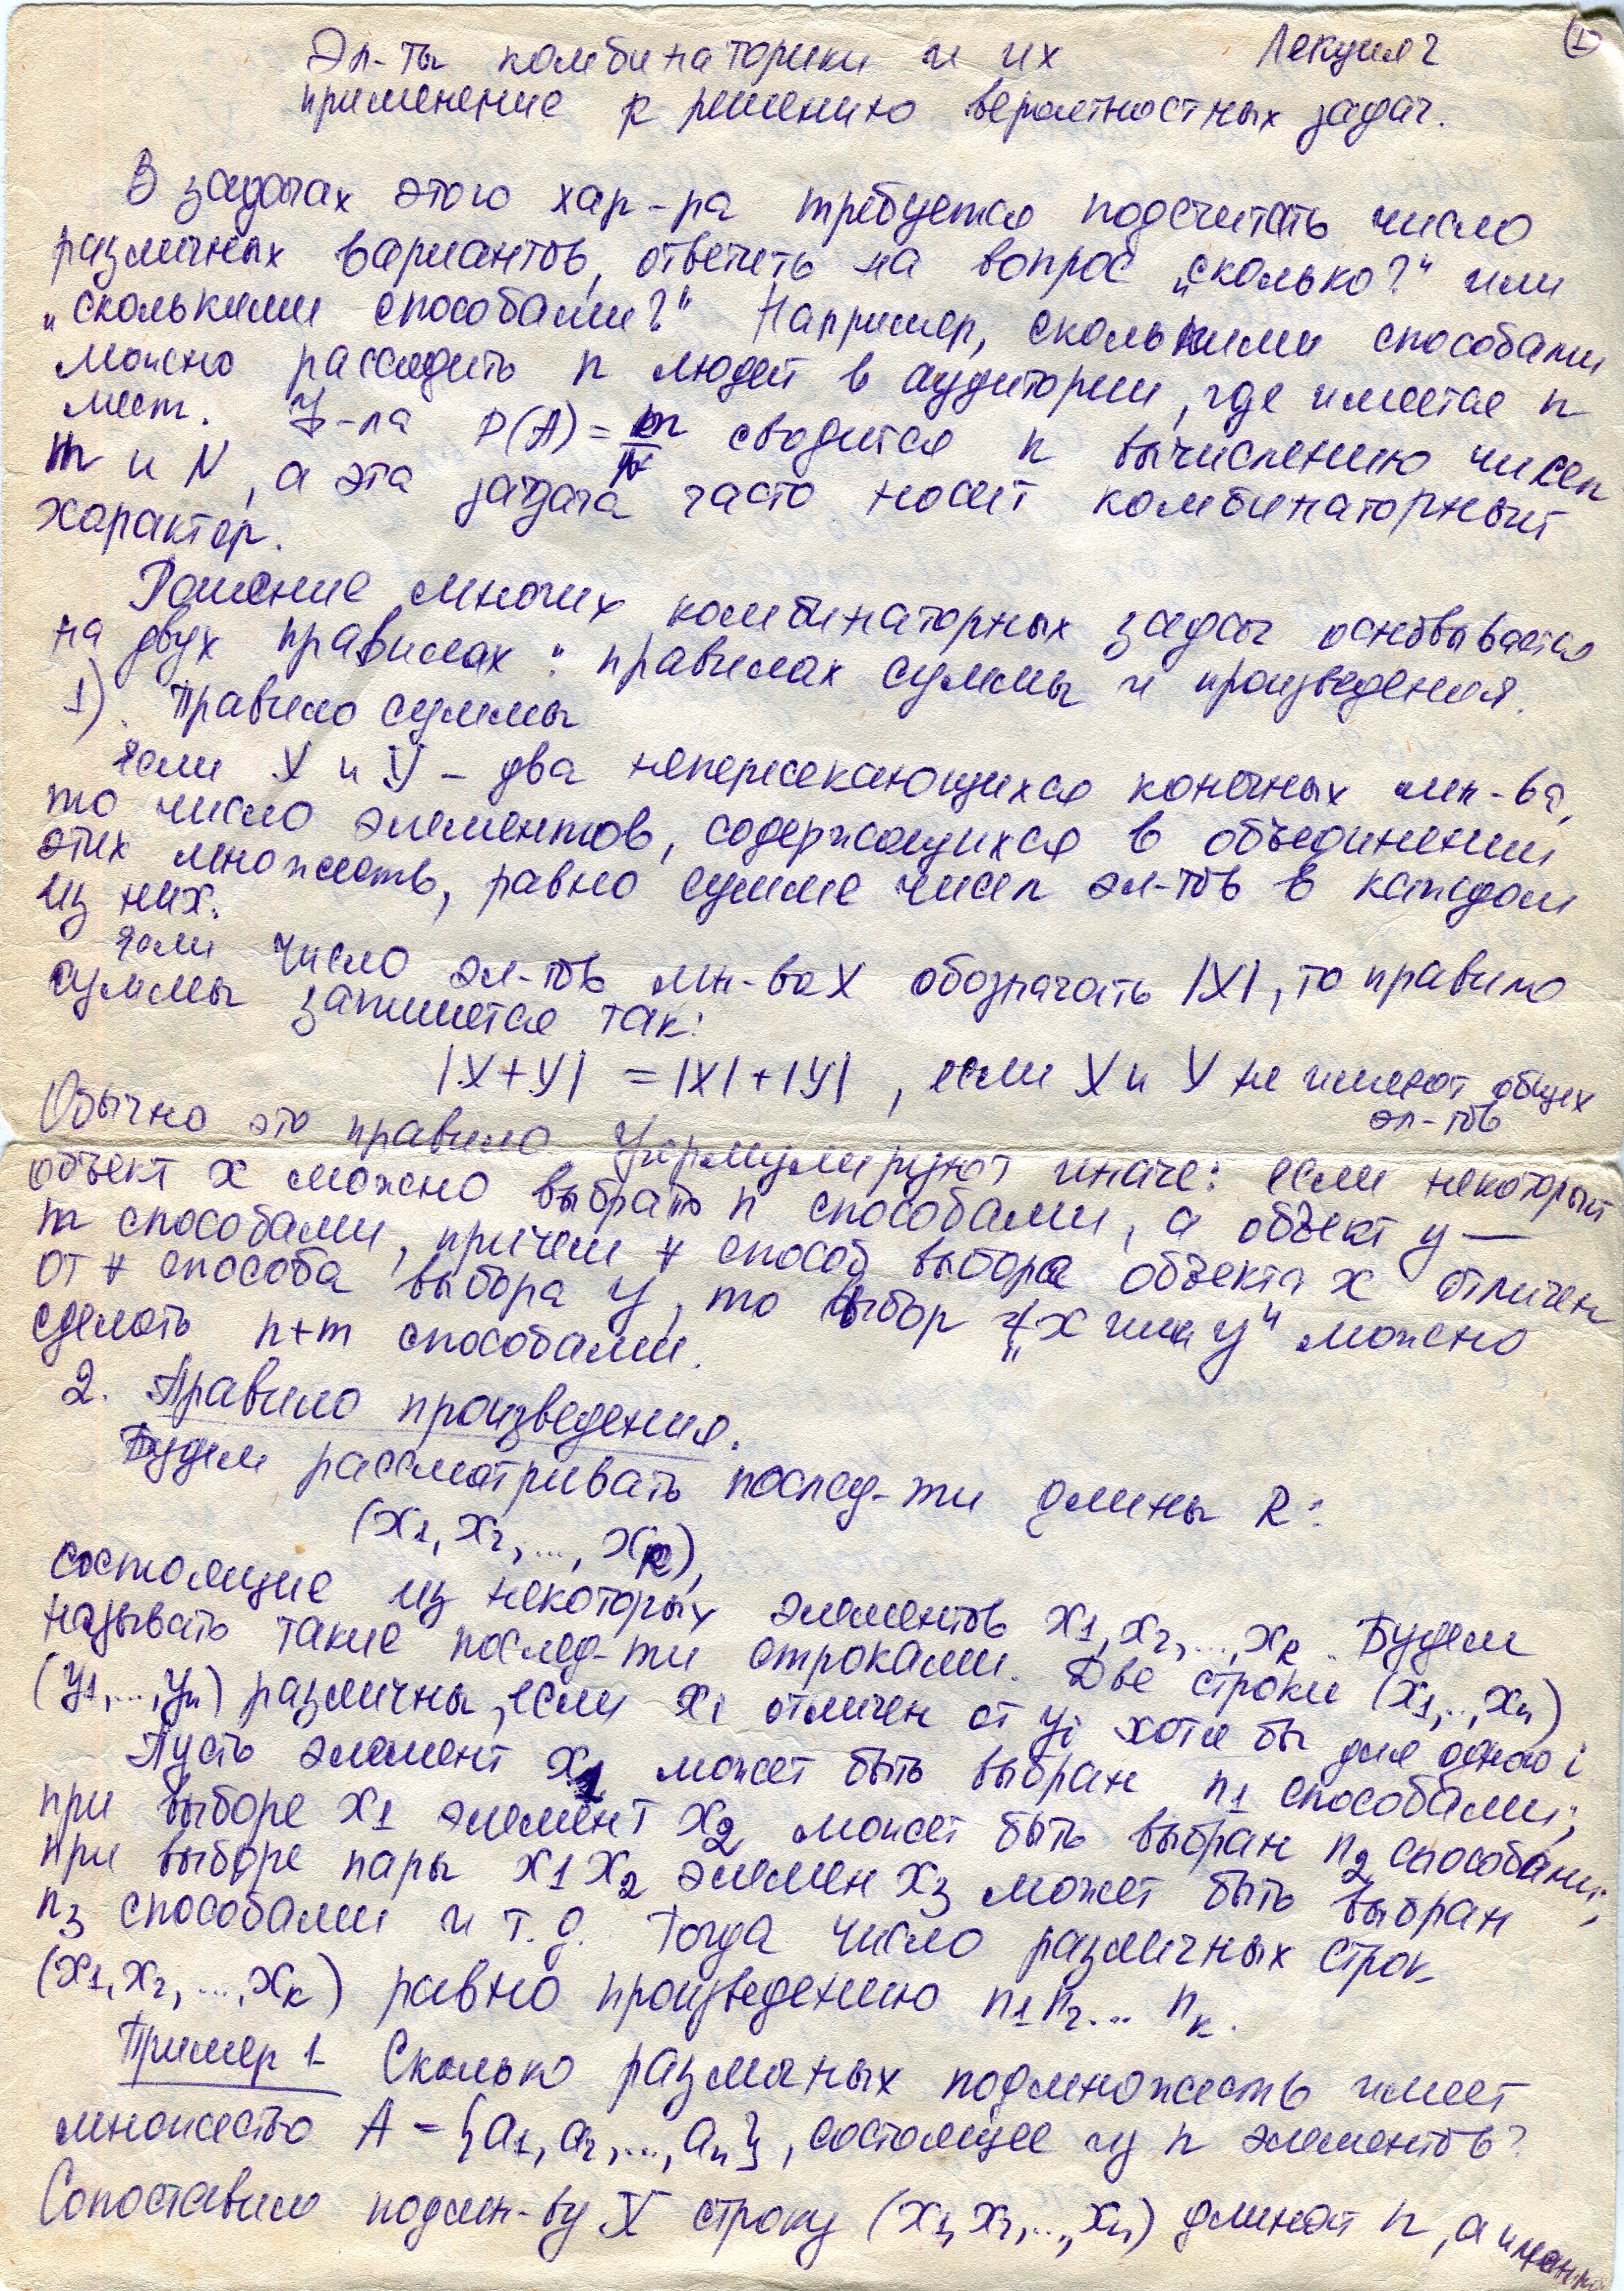 Эл-ты комбинаторики и их Лекция 2 1
применение к решению вероятностных задач.
В задачах этого хар-ра требуется подсчитать число
различных вариантов, ответить на вопрос „сколько?" или
„сколькими способами?" Например, сколькими способами
можно рассадить n людей в аудитории, где имеется n
мест. Ф-ла P(A) = m/N сводится к вычислению чисел
m и N, а эта задача часто носит комбинаторный
характер.
Решение многих комбинаторных задач основывается
на двух правилах: правилах суммы и произведения.
1). Правило суммы
Если X и Y – два непересекающихся конечных мн-ва,
то число элементов, содержащихся в объединении
этих множеств, равно сумме чисел эл-тов в каждом
из них.
Если число эл-тов мн-ва X обозначать |X|, то правило
суммы запишется так:
|X+Y| = |X|+|Y|, если X и Y не имеют общих
эл-тов
Обычно это правило формулируют иначе: если некоторый
объект x можно выбрать n способами, а объект y —
m способами, причем ∀ способ выбора объекта x отличен
от ∀ способа выбора y, то выбор „x или y" можно
сделать n+m способами.
2. Правило произведения.
Будем рассматривать послед-ти длины k:
(x1, x2, ..., xk),
состоящие из некоторых элементов x1, x2, ..., xk. Будем
называть такие послед-ти строками. Две строки (x1,..,xn)
(y1,...,yn) различны, если xi отличен от yi хотя бы для одного i
Пусть элемент x1 может быть выбран n1 способами;
при выборе x1 элемент x2 может быть выбран n2 способами;
при выборе пары x1 x2 элемен x3 может быть выбран
n3 способами и т.д. Тогда число различных строк
(x1, x2, ..., xk) равно произведению n1 n2... nk.
Пример 1 Сколько различных подмножеств имеет
множество A = {a1, a2, ..., an}, состоящее из n элементов?
Сопоставим подмн-ву X строку (x1, x2, ..., xn) длиной n, а именно